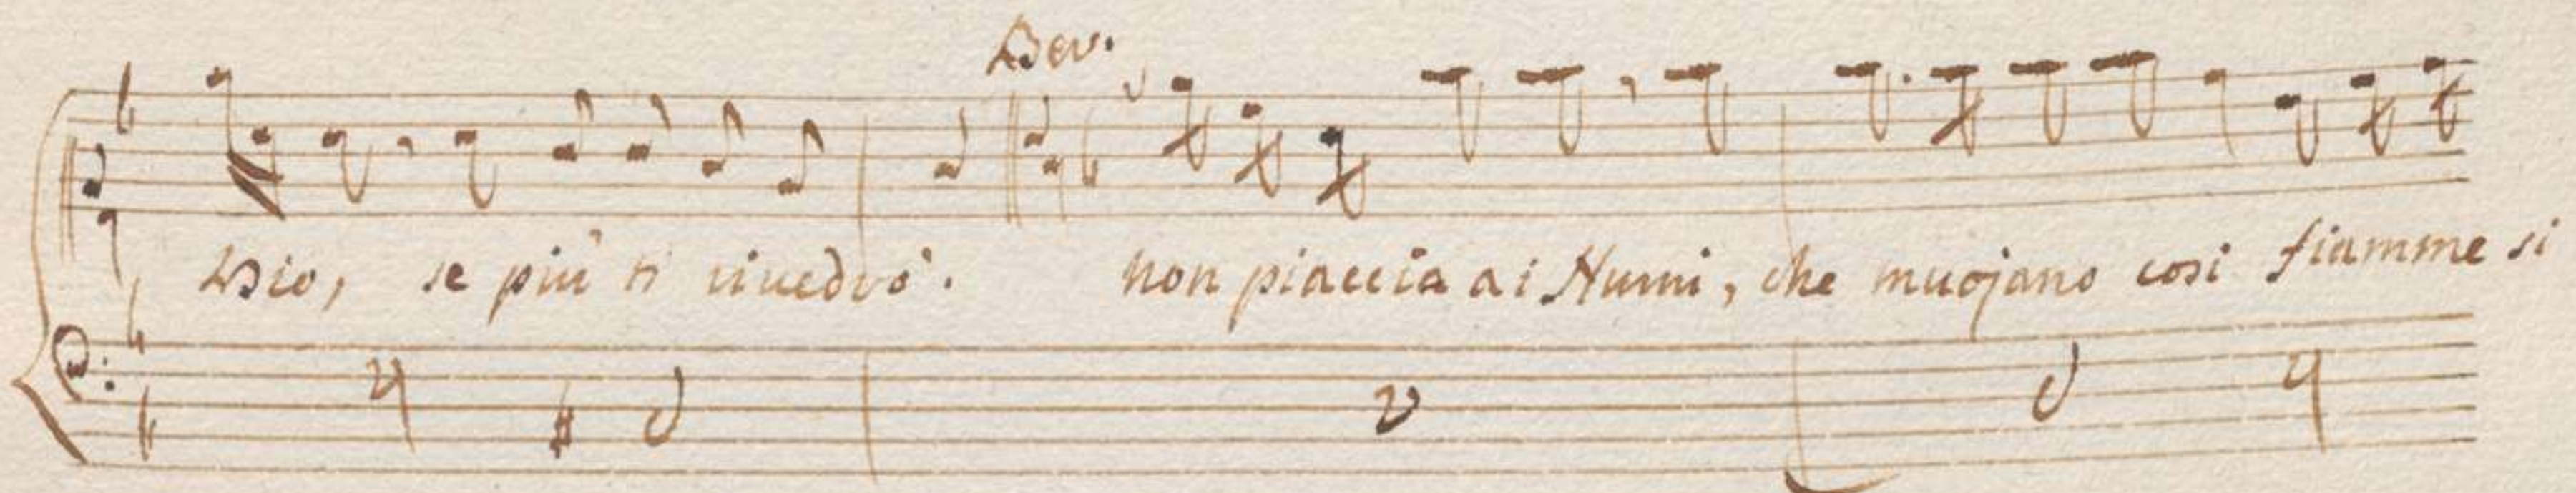 Ber.
Dio, se più ti rivedrò. non piaccia ai Numi, che muojano cosi fiamme si